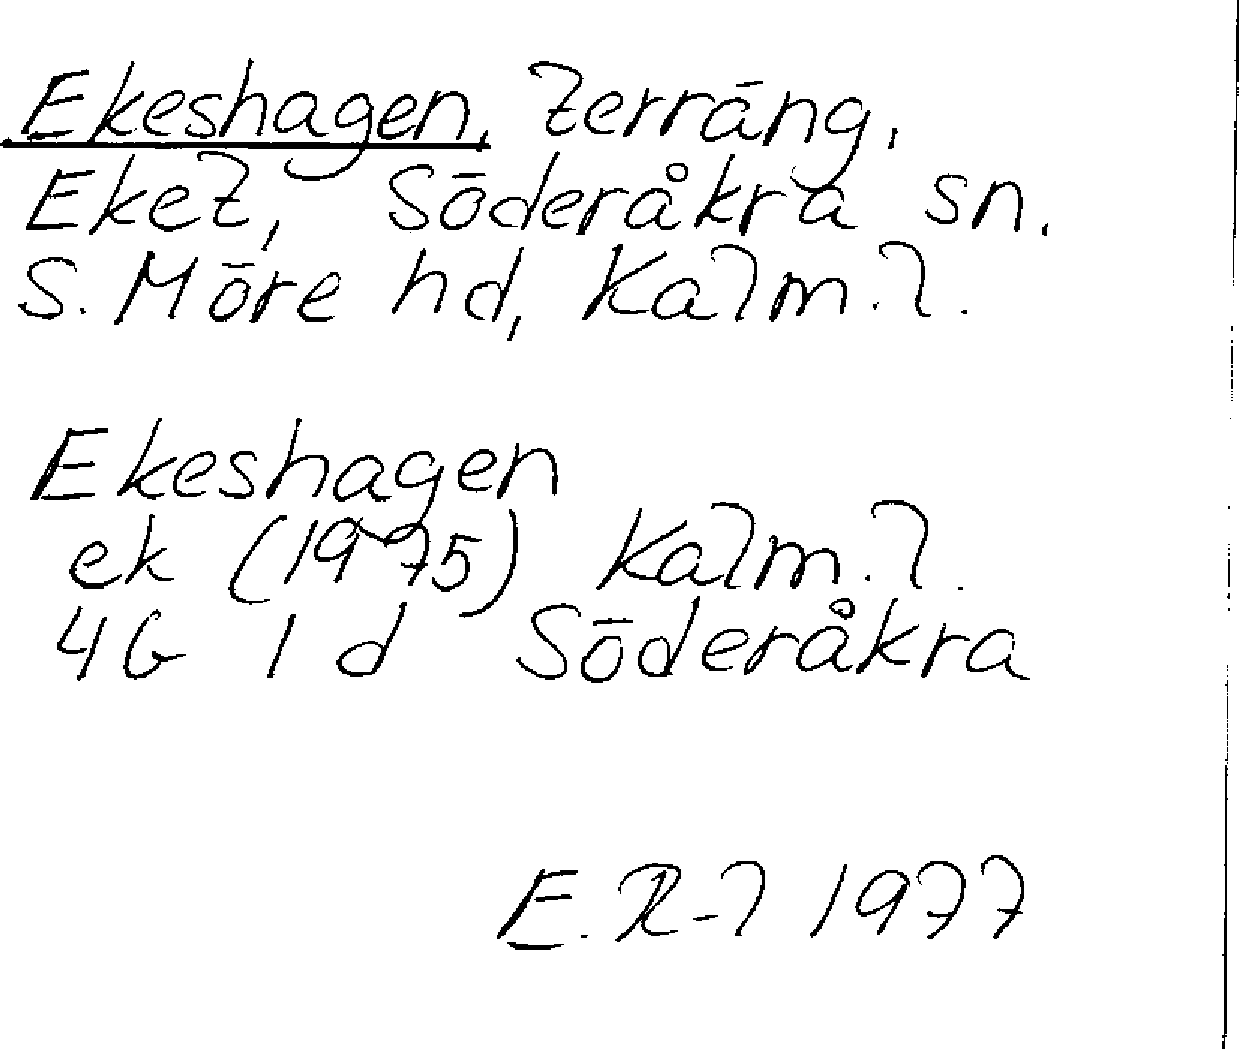 Ekeshagen, terräng,
Eket, Söderåkra sn.
S. Möre hd, Kalm. l.
Ekeshagen
ek (1975) Kalm. l.
4G 1 d Söderåkra
E. R-l 1977